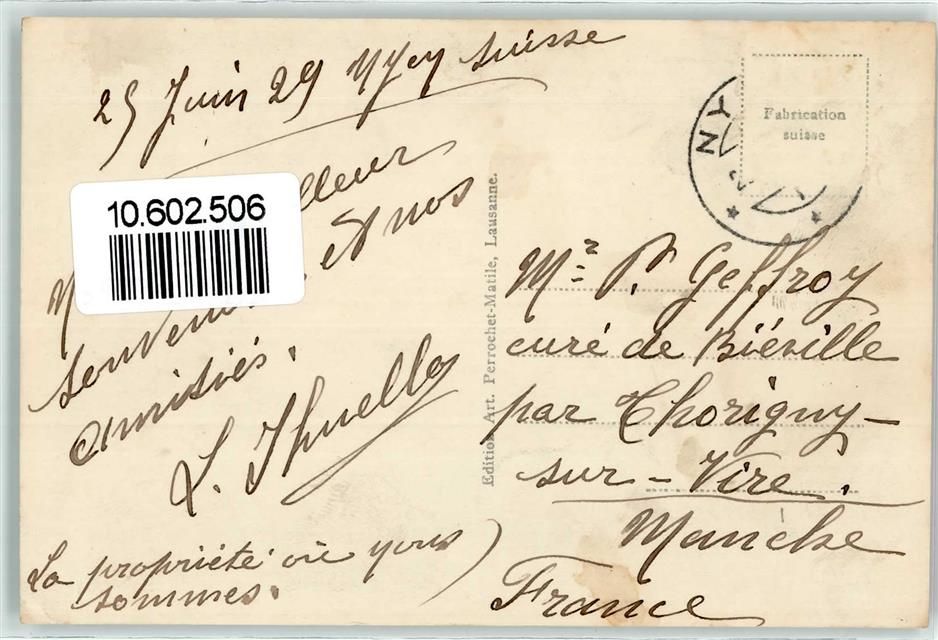 25 Juin 29 Nyey Suisse
lleur
et nos
souvenirs
amitiés.
L. Thuello
La propriété où yous
sommes.
10.602.506
Edition Art. Perrochet-Matile, Lausanne.
NY
Fabrication
suisse
Mr P. Geffroy
curé de Biéville
par Thorigny-
sur-Vire.
Manche
France